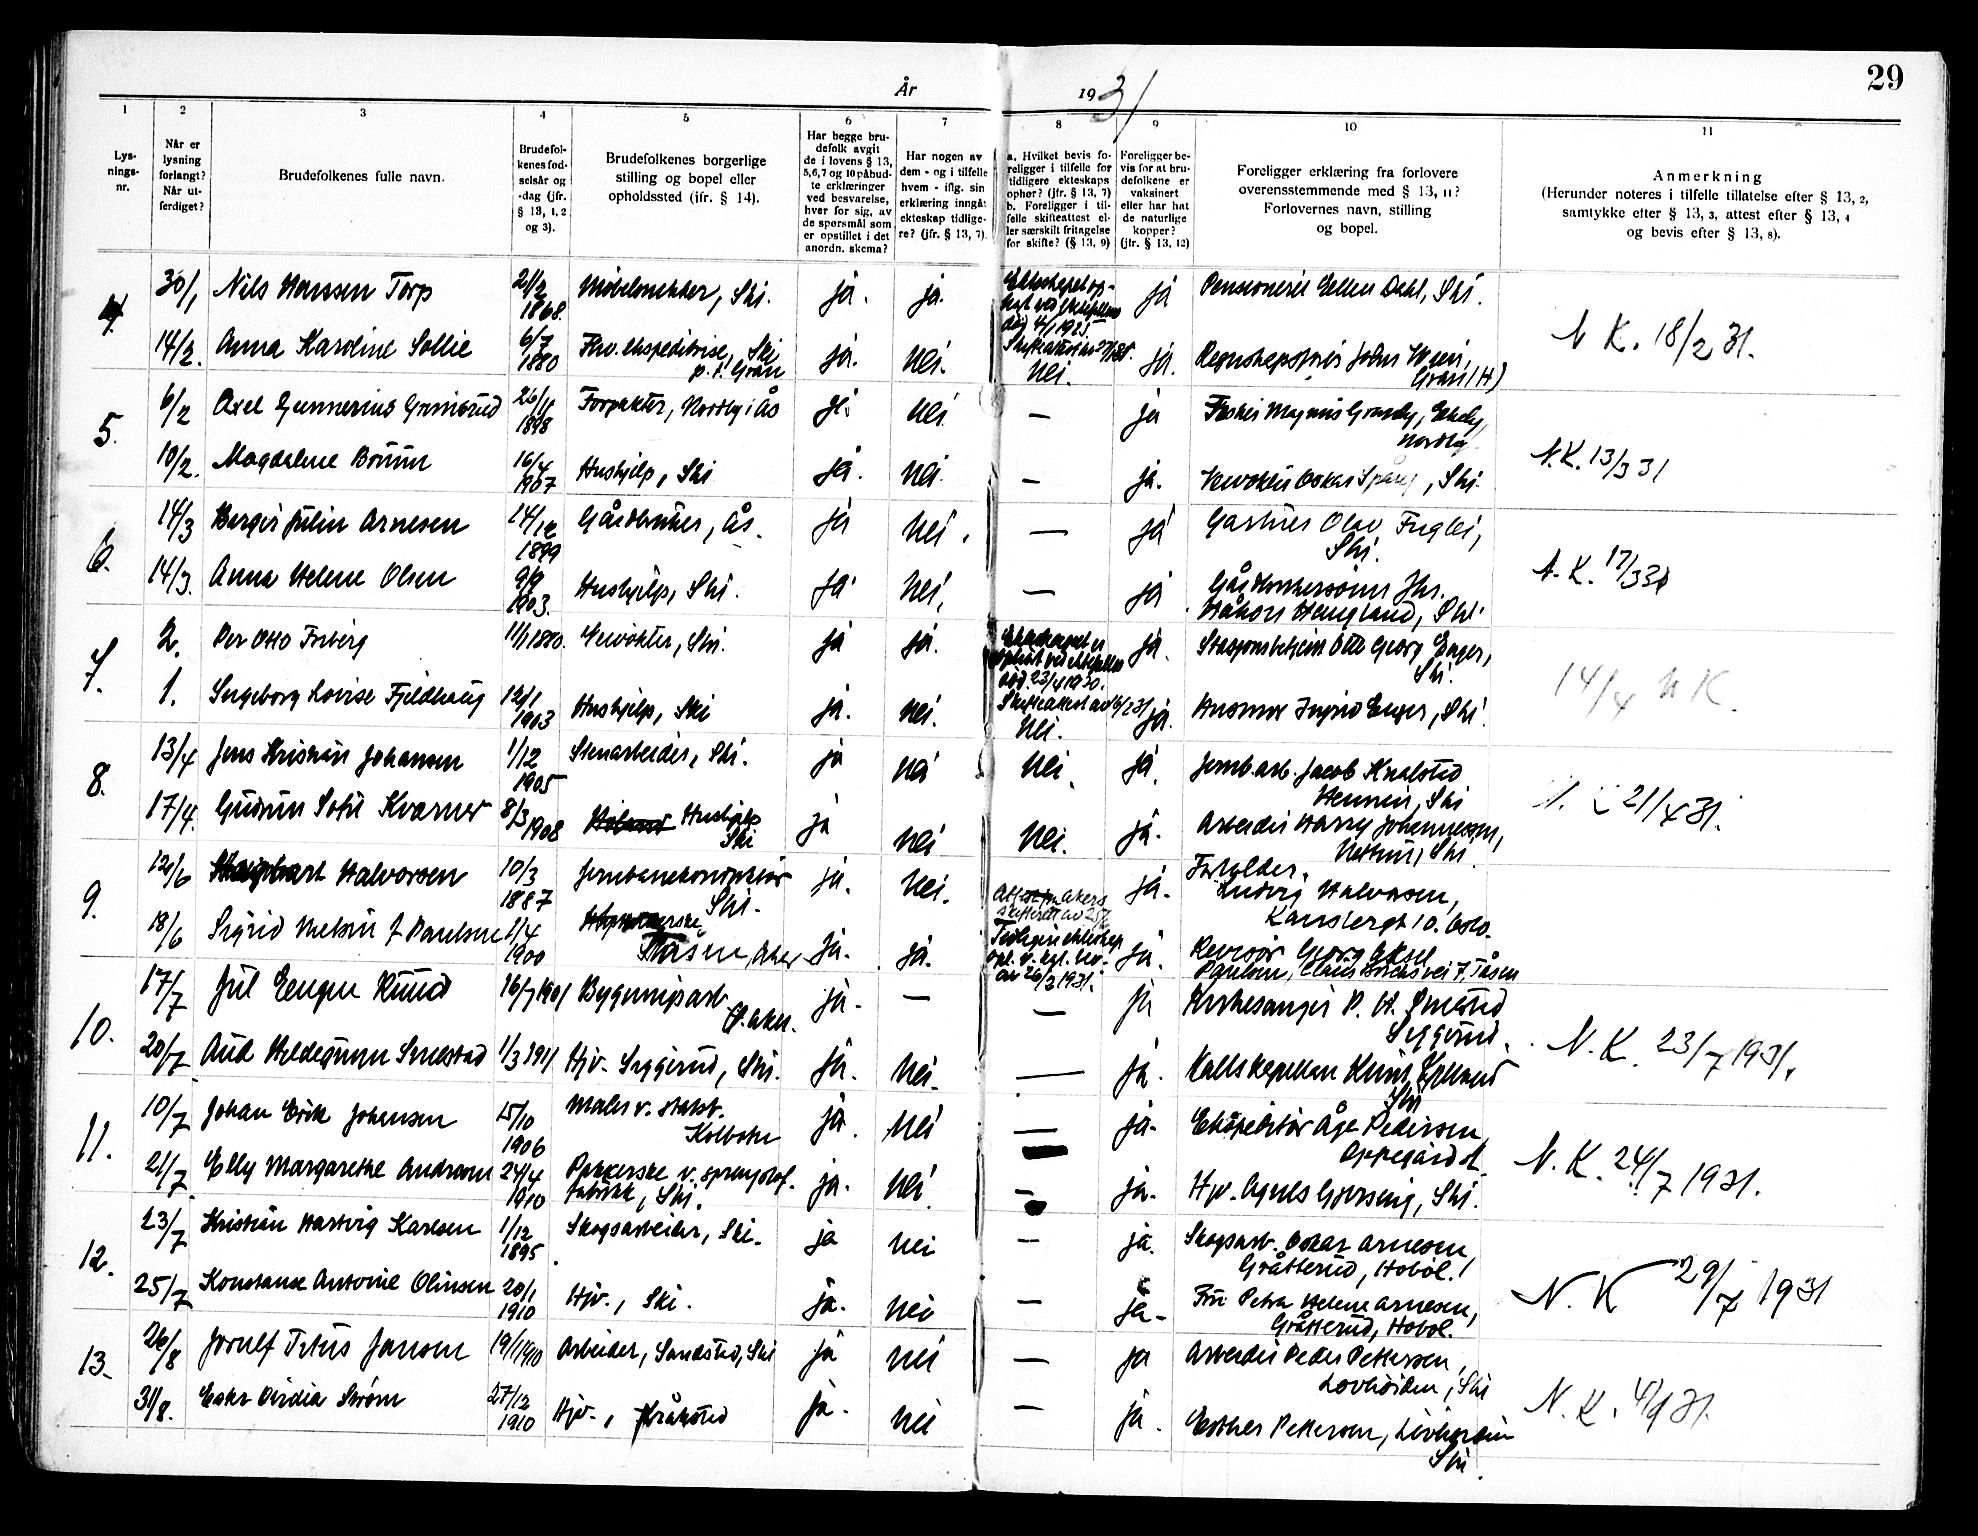 29
År 1931
1 2 3 4 5 6 7 8 9 10 11
Lys-
nings-
nr.
Når er
lysning
forlangt?
Når ut-
ferdiget?
Brudefolkenes fulle navn.
Brudefol-
kenes fød-
selsår og
-dag (jfr.
§ 13, 1, 2
og 3).
Brudefolkenes borgerlige
stilling og bopel eller
opholdssted (jfr. § 14).
Har begge bru-
defolk avgit
de i lovens § 13,
5, 6, 7 og 10 påbud-
te erklæringer
ved besvarelse,
hver for sig, av
de spørsmål som
er opstillet i det
anordn. skema?
Har nogen av
dem - og i tilfelle
hvem - iflg. sin
erklæring inngåt
ekteskap tidlige-
re? (jfr. § 13, 7).
a. Hvilket bevis fo-
religger i tilfelle for
tidligere ekteskaps
ophør? (jfr. § 13, 7)
b. Foreligger i til-
felle skifteattest el-
ler særskilt fritagelse
for skifte? (§ 13, 9)
Foreligger be-
vis for at bru-
defolkene er
vaksinert
eller har hat
de naturlige
kopper?
(jfr. § 13, 12)
Foreligger erklæring fra forlovere
overensstemmende med § 13, 11?
Forlovernes navn, stilling
og bopel.
Anmerkning
(Herunder noteres i tilfelle tillatelse efter § 13, 2,
samtykke efter § 13, 3, attest efter § 13, 4
og bevis efter § 13, 8).
4. 30/1 Nils Hanssen Torp 21/2 1868. Møbelsnekker, Ski. ja. ja. ja Pensionerer Ellen Dahl, Ski.
14/2. Anna Karoline Sollie 6/7 1880 Frv. ekspeditrise, Ski p.t. Gran ja. nei. nei. ja. Regnskapsfører Johs Wien, Gran (H)
N K. 18/2 31.
5. 6/2 Axel Gunnerius Grimsrud 26/11 1898 Forpakter, Nordby i Ås ja nei. — ja Magnus Granby, Ekeby, Nordby.
10/2. Magdalene Bruun 16/4 1907 Hushjelp, Ski ja. nei. — ja. Oskar Spång, Ski.
N.K. 13/3 31
6. 14/3 Birger Julin Arnesen 14/12 1899 Gårdbruker, Ås. ja nei. — ja Gartner Olav Fuglei, Ski.
14/3. Anna Helene Olsen 9/9 1903. Hushjelp, Ski. ja nei. — ja Håkon Haugland, Ski
N. K. 17/3 31
7. 2. Per Otto Friberg 11/1 1880. Ski. ja ja. Ekteskapet er opløst ved ektefellens død 23/4 1930. ja. Stasjonsbetjent Otto Georg Enger, Ski.
1. Ingeborg Lovise Fjeldhaug 12/1 1903 Hushjelp, Ski ja. nei. nei. ja. Husmor Ingrid Enger, Ski.
14/4 N K.
8. 13/4 Jens Kristian Johansen 1/12 1905 Stenarbeider, Ski. ja nei nei. ja. Jernb.arb. Jacob Knalstad Hennum, Ski
17/4. Gudrun Sofie Kværner 8/3 1908 Hushjelp Ski ja nei nei. ja. Arbeider Harry Johannessen, Ski.
21/4 31.
9. 12/6 Halvorsen 10/3 1887 Jernbanekonduktør Ski. ja. nei. ja. Forgylder Ludvig Halvorsen, 10. Oslo.
18/6 Sigrid Nielsen f Paulsen 1/4 1900 Tåsen, Aker ja. ja. ja. Revisor Georg Aksel Paulsen, 7, Tåsen
10. 17/7 Jul Eugen Ruud 16/7 1901 Bygningsarb. Ø. Aker. ja. — — ja Kirkesanger P. H. Smestad Siggerud.
20/7 Aud Hildegunn Smestad 1/3 1911 Hjv. Siggerud, Ski. ja. nei. — ja. Ski
N. K. 23/7 1931.
11. 10/7 Johan Erik Johansen 15/10 1906 Maler Kolbotn ja. nei — ja. Ekspeditør Åge Pedersen, Oppegård st.
21/7 Elly Margarethe Andresen 24/4 1910 Pakkerske v. sprengstof. fabrikk, Ski. ja. nei. — ja. Hjv. Agnes Gjersing, Ski.
N. K. 24/7 1931.
12. 23/7 Kristian Hartvig Karlsen 1/12 1895 Skogsarbeider, Ski. ja nei — ja. Skogsarb. Oskar Arnesen, Gråtterud, Hobøl.
25/7 Konstanse Antonie Olinsen 20/1 1910 Hjv., Ski. ja. nei — ja. Fru Petra Helene Arnesen, Gråtterud, Hobøl.
N. K 29/7 1931
13. 26/8 Jornulf Titus Janson 19/1 1910 Arbeider, Sandstad, Ski ja nei — ja Arbeider Peder Pettersen, Ski
31/8. Ester Viridia Strøm 27/12 1910 Hjv., Kråkstad ja. nei — ja. Esther Pettersen, Ski.
N. K. 4/9 31.